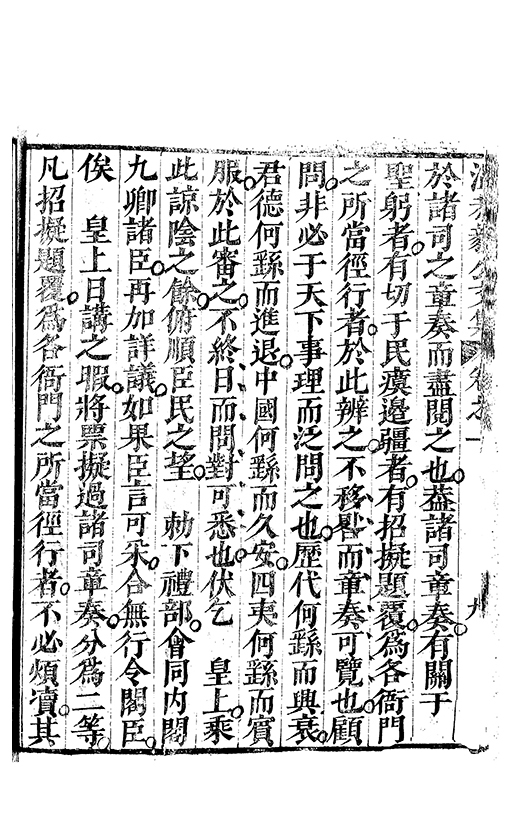 於諸司之章奏而盡閱之也葢諸司章奏有關于
聖躬者有切于民瘼邉疆者有招擬題覆爲各衙門
之所當徑行者於此辨之不移晷而章奏可覽也顧
問非必于天下事理而泛問之也歷代何繇而興衰
君德何繇而進退中國何繇而久安四夷何繇而賓
服於此審之不終日而問對可悉也伏乞　皇上乘
此諒陰之餘俯順臣民之望　勅下禮部會同内閣
九卿諸臣再加詳議如果臣言可采合無行令閣臣
俟　皇上日講之暇將票擬過諸司章奏分爲二等
凡招擬題覆爲各衙門之所當徑行者不必煩瀆其